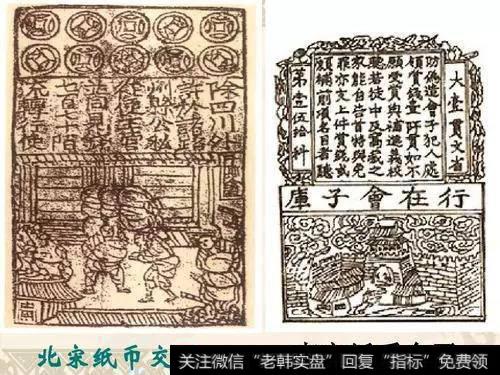 除四川外
許於諸路
州縣公私
從便主管
並同見錢
七百七十陌
流轉行使
大壹貫文省
敕偽造會子犯人處
斬賞錢壹阡貫如不
願受賞與補進義校
尉若徒中及窩藏之
家能自告首特與免
罪亦支上件賞錢或
願補前項名目者聽
第壹伍拾料
行在會子庫
北宋纸币交
关注微信"老韩实盘"回复"指标"免费领